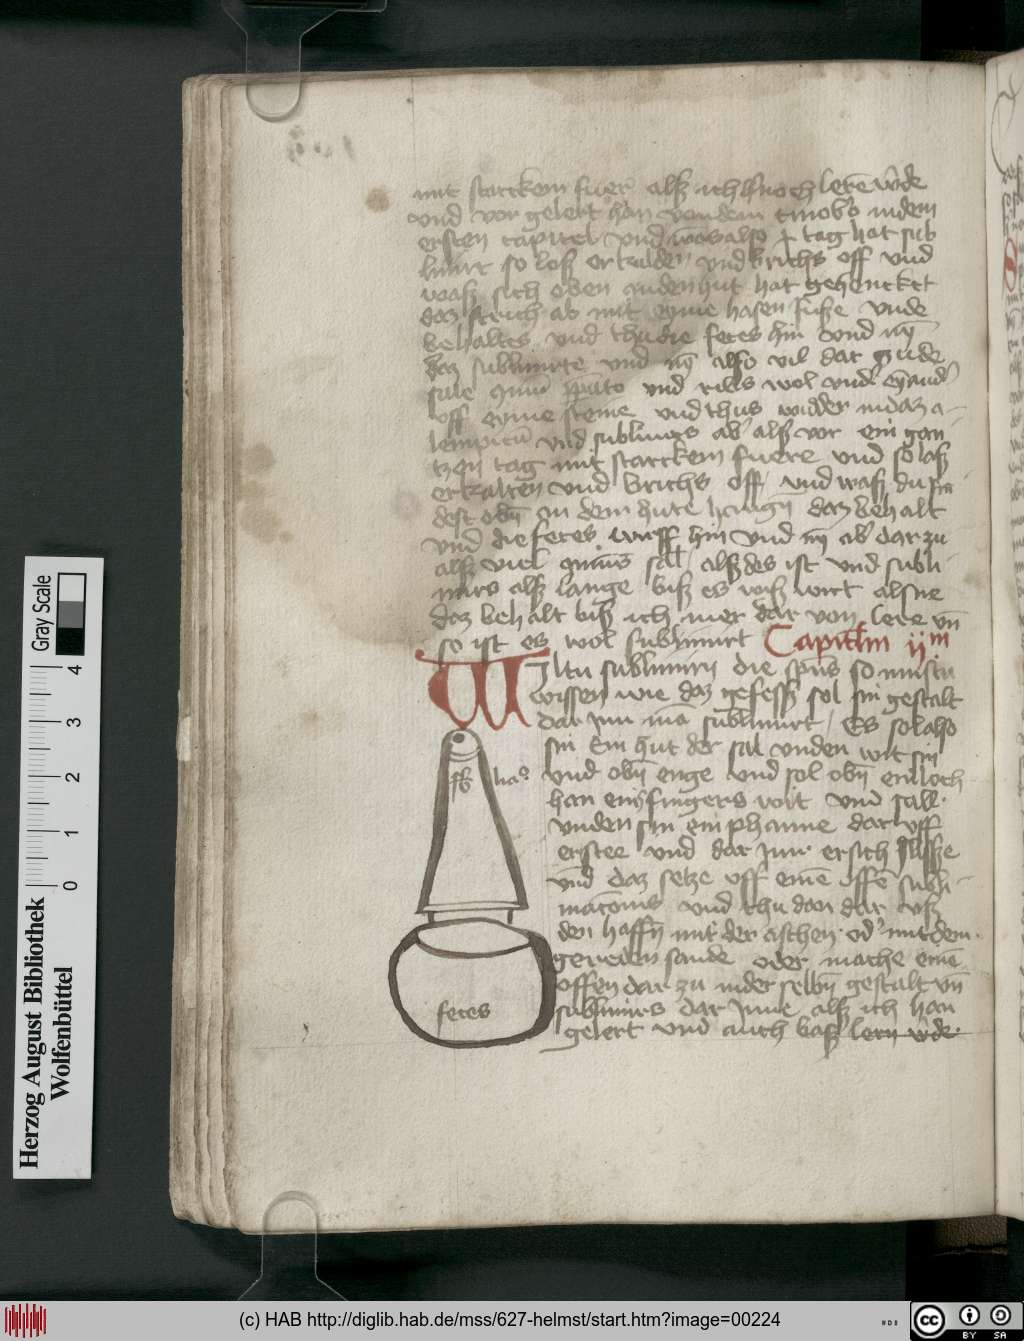 mit starckem fuer alß ich hnoch lere wde
vnd vor gelert han von dem cinobo in dem
ersten capitel vnd also tag hat sub
limirt so loß erkalden vnd brichs off vnd
waß sich oben an den hut hat gehencket
daz strich ab mit eyme hasen fuße vnde
behaltes vnd thu die feces hin vnd
daz sublimirte vnd also vil dar zu de
sale vnd ribs wol vnder
vff eyme steine vnd thus widder in daz a-
vnd sublimirs ab alß vor ein gan
tzen tag mit starckem fuere vnd so laß
erkalten vnd brichs off vnd waß du fin
dest obn an dem hute hangn daz behalt
vnd die feces wirff hin vnd ab dar zu
alß viel sal alß des ist vnd subli-
mirs alß lange biß es wiß wirt alsne
daz behalt biß ich mer dar von lere vn
so ist es wol sublimirt Capitlm ij m
Wiltu sublimirn die spus so mustu
wissen wie daz gefesß sol sin gestalt
dar jnn ma sublimirt / Es sol also
sin Ein hut der sal vnden wit sin
vnd obn enge vnd sol obn ein loch
han eins fingers wit vnd sall
vnden sin ein phanne dar vff
erstee vnd dar jnn ersich
vnd daz setze vff eine offe subli-
macionis vnd thu dan dar vß
den haffn mit der aschen od mit dem
gereden sande oder mache eine
offen dar zu in der selbn gestalt vn
sublimirs dar jnne alß ich han
gelert vnd auch baß lern wde
feces
Herzog August Bibliothek
Wolfenbüttel
0 1 2 3 4
Gray Scale
(c) HAB http://diglib.hab.de/mss/627-helmst/start.htm?image=00224
cc BY SA